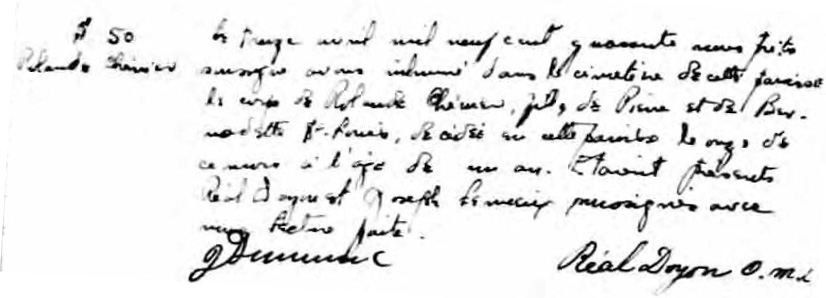 # 50
Rolande Chénier
Le treize avril mil neuf cent quarante nous prêtre
soussigné avons inhumé dans le cimetière de cette paroisse
le corps de Rolande Chénier, fils de Pierre et de Ber-
nadette St-Louis, décédé en cette paroisse le onze de
ce mois à l'âge de un an. Étaient présents
Réal Doyon et Joseph Lemieux soussignés avec
nous lecture faite.
Réal Doyon O.M.I.